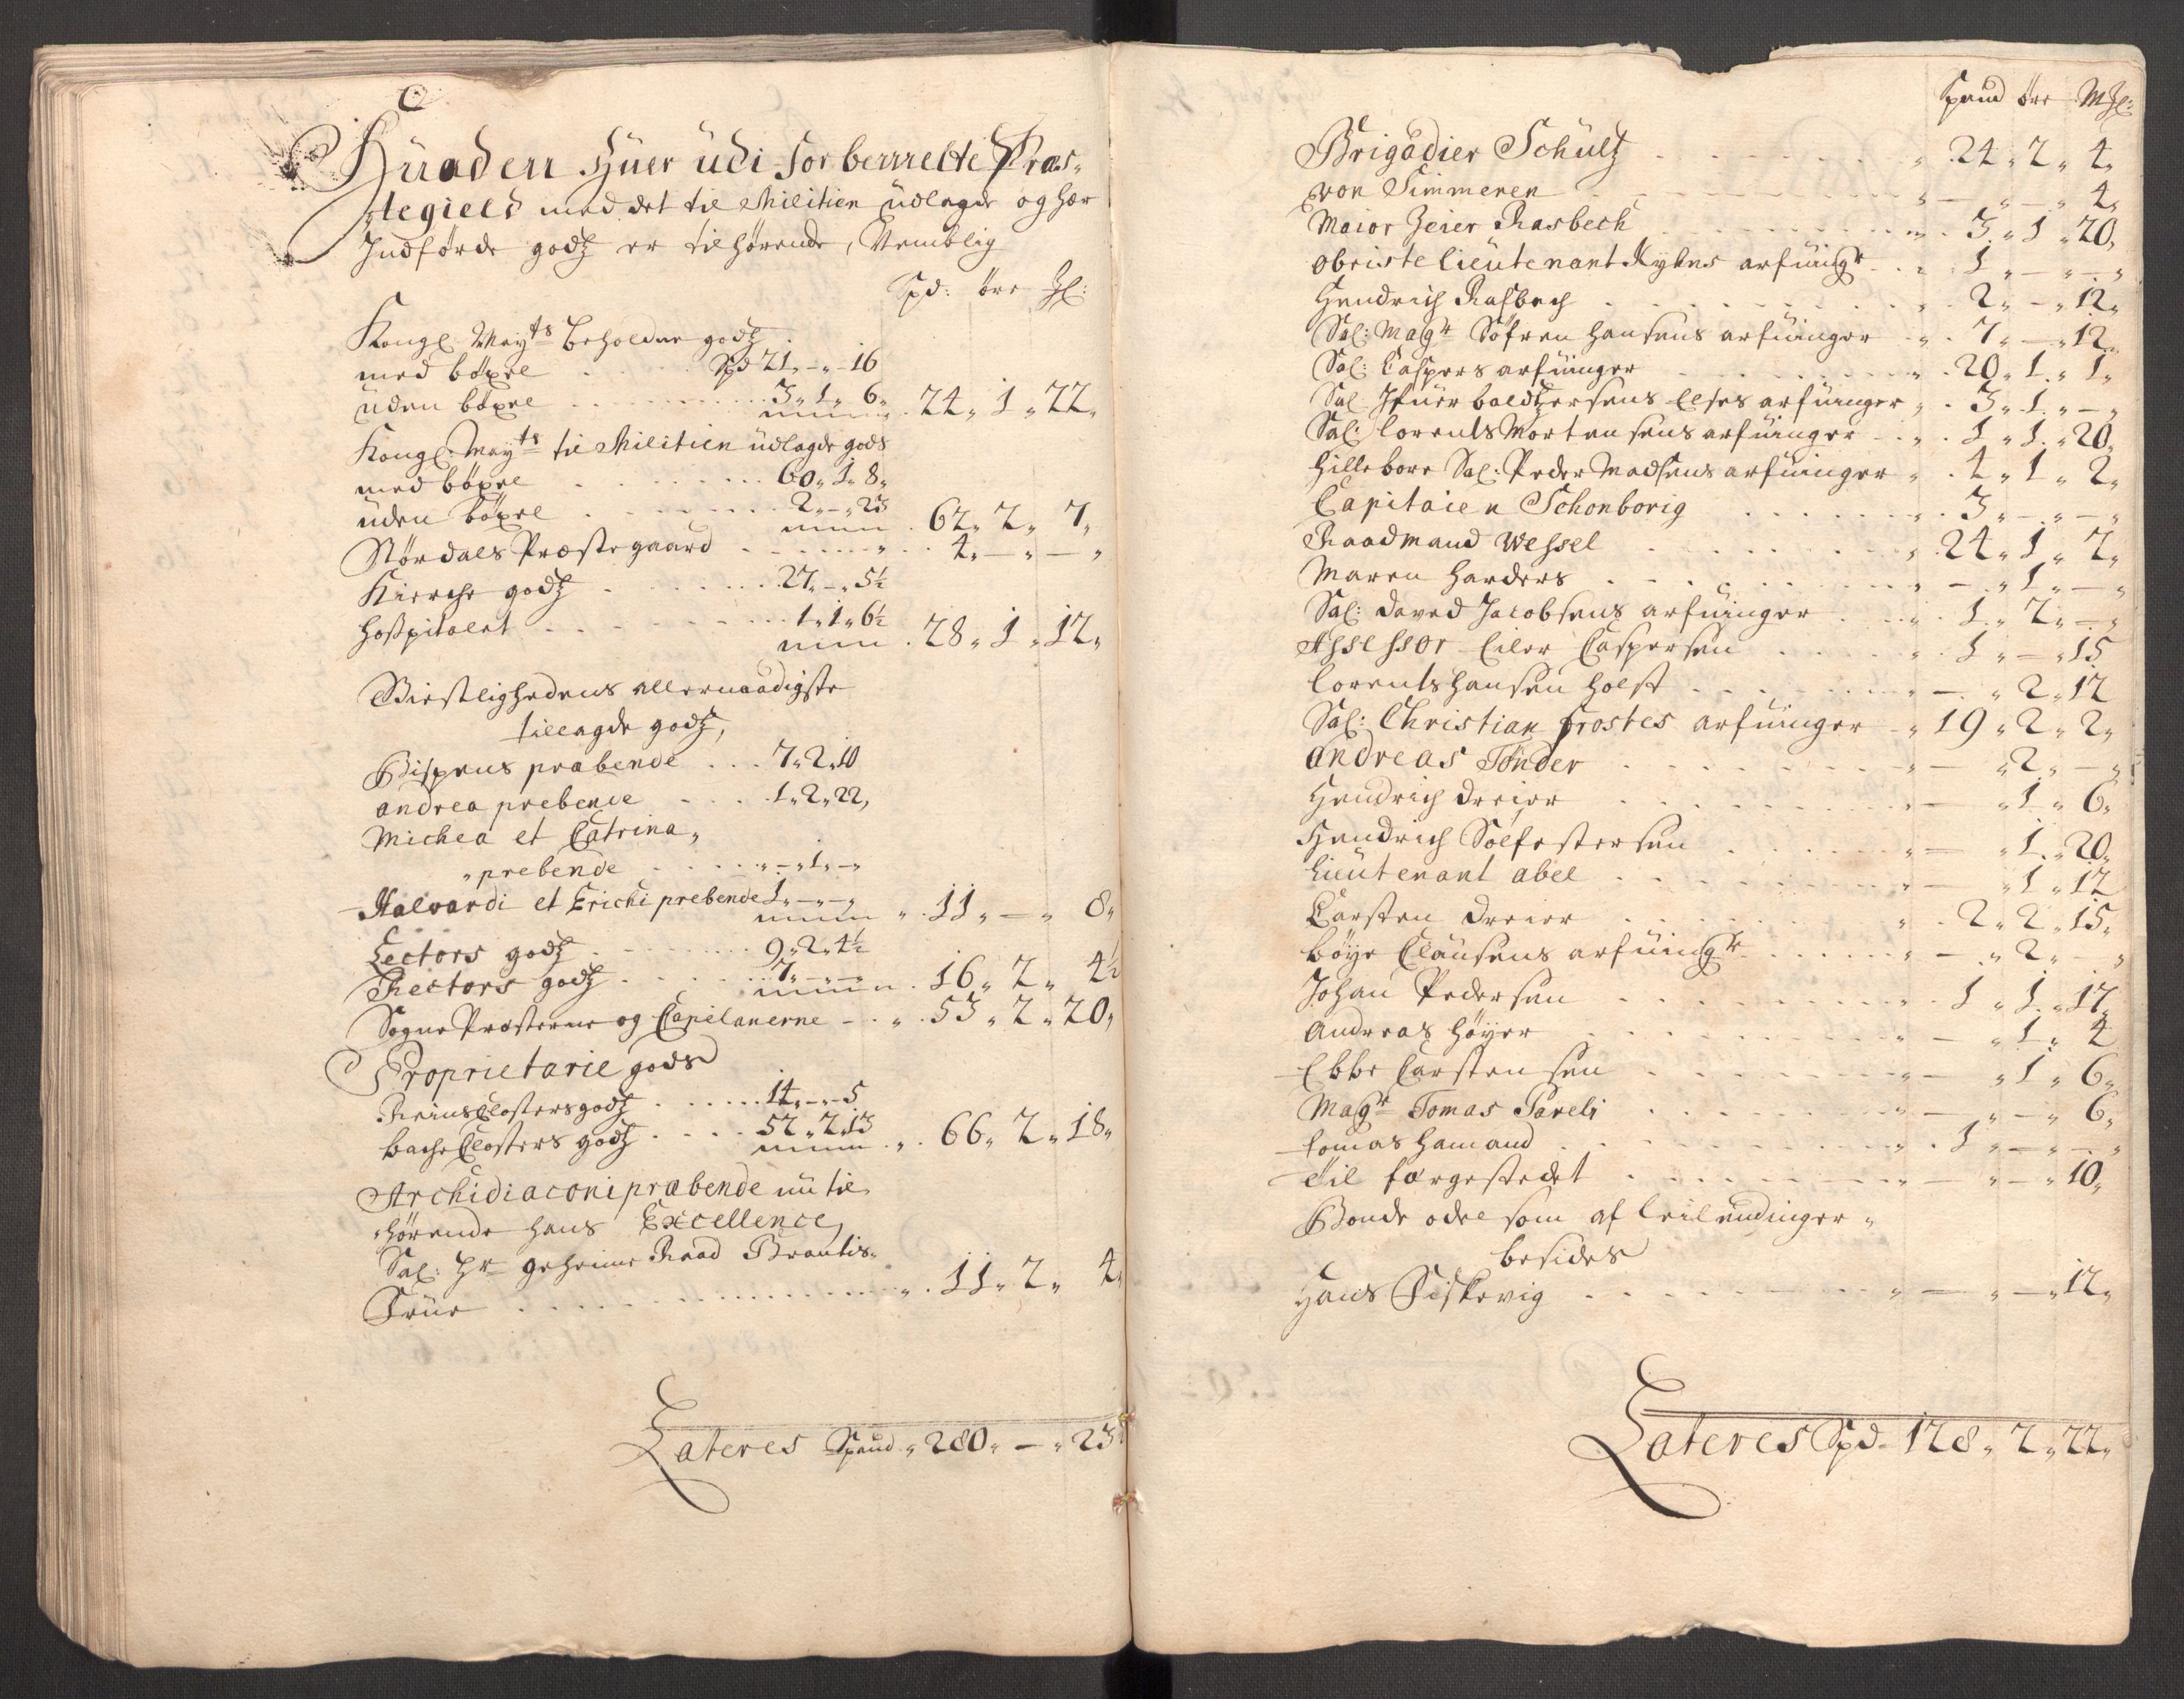 Huadem Huer udi forbermelte Præs-
tegield med det til Militien udlagde og her
Indførde godtz er tilhørende, Nemblig
Spd: øre Ml:
Kongl: Mayts beholdne godtz
med böxel Spd 21 - 16
uden böxel 3 1 6 24 1 22
Kongl: Mayts til Militien udlagde gods
med böxel 60 1 8
uden böxel 2 - 23 62 2 7
Størdals Præstegaard 4 - -
Kierche godtz 27 - 5½
Hospitalet 1 1 6½ 28 1 12
Giestlighedens allernaadigste
tillagde godtz,
Bispens præbende 7 2 10
andrea prebende 1 2 22
Michea et Catrina
prebende - 1 -
Halvardi et Erichi prebende 1 - - 11 - 8
Lectors godtz 9 2 4½
Rectors godtz 7 - - 16 2 4½
Sogne Præsterne og Capelanerne 53 2 20
Proprietarie gods
Reins Closters godtz 14 - 5
bache Closters godtz 52 2 13 66 2 18
Archidiaconi præbende nu til
hørende hans Excellence
Sal: Hr geheime Raad Brantis
Frue 11 2 4
Lateres Spand 280 - 23½
Spand øre Ml:
Brigadier Schultz 24 2 4
von Timmeren - - 4
Maior Zeier Rasbech 3 1 20
obriste lieutenant Kyhns arfuingr 1 - -
Hendrich Rasbech 2 - 12
Sal: Magr Søfren Hansens arfuinger 7 - 12
Sal: Caspers arfuinger 20 1 1
Sal: Ifuer baldtzersens Elses arfuinger 3 1 -
Sal: Lorents Mortensens arfuinger 1 1 20
Hilleborr Sal: Peder Madsens arfuinger 4 1 2
Capitaien Schonborig 3 - -
Raadmand Wessel 24 1 7
Maren Harders - 1 -
Sal: David Jacobsens arfuinger 1 2 -
Assessor Eiler Caspersen 1 - 15
Lorents Hansen Holst - 2 12
Sal: Christian Frostes arfuinger 19 2 2
andreas Tønder - 2 -
Hendrich dreier - 1 6
Hendrich Solfestersen - 1 20
Lieutenant abel - 1 12
Carsten dreier 2 2 15
böye Clausens arfuingr - 2 -
Johan Pedersen 1 1 17
Andreas Høyer - 1 4
Ebbe Carstensen - 1 6
Magr Tomas Pareli - - 6
Tomas Hamand 1 - -
Til færgestedet - - 10
Bonde odel som af Leilendinger
besides
Hans Fiskevig - - 12
Lateres Spd 128 2 22